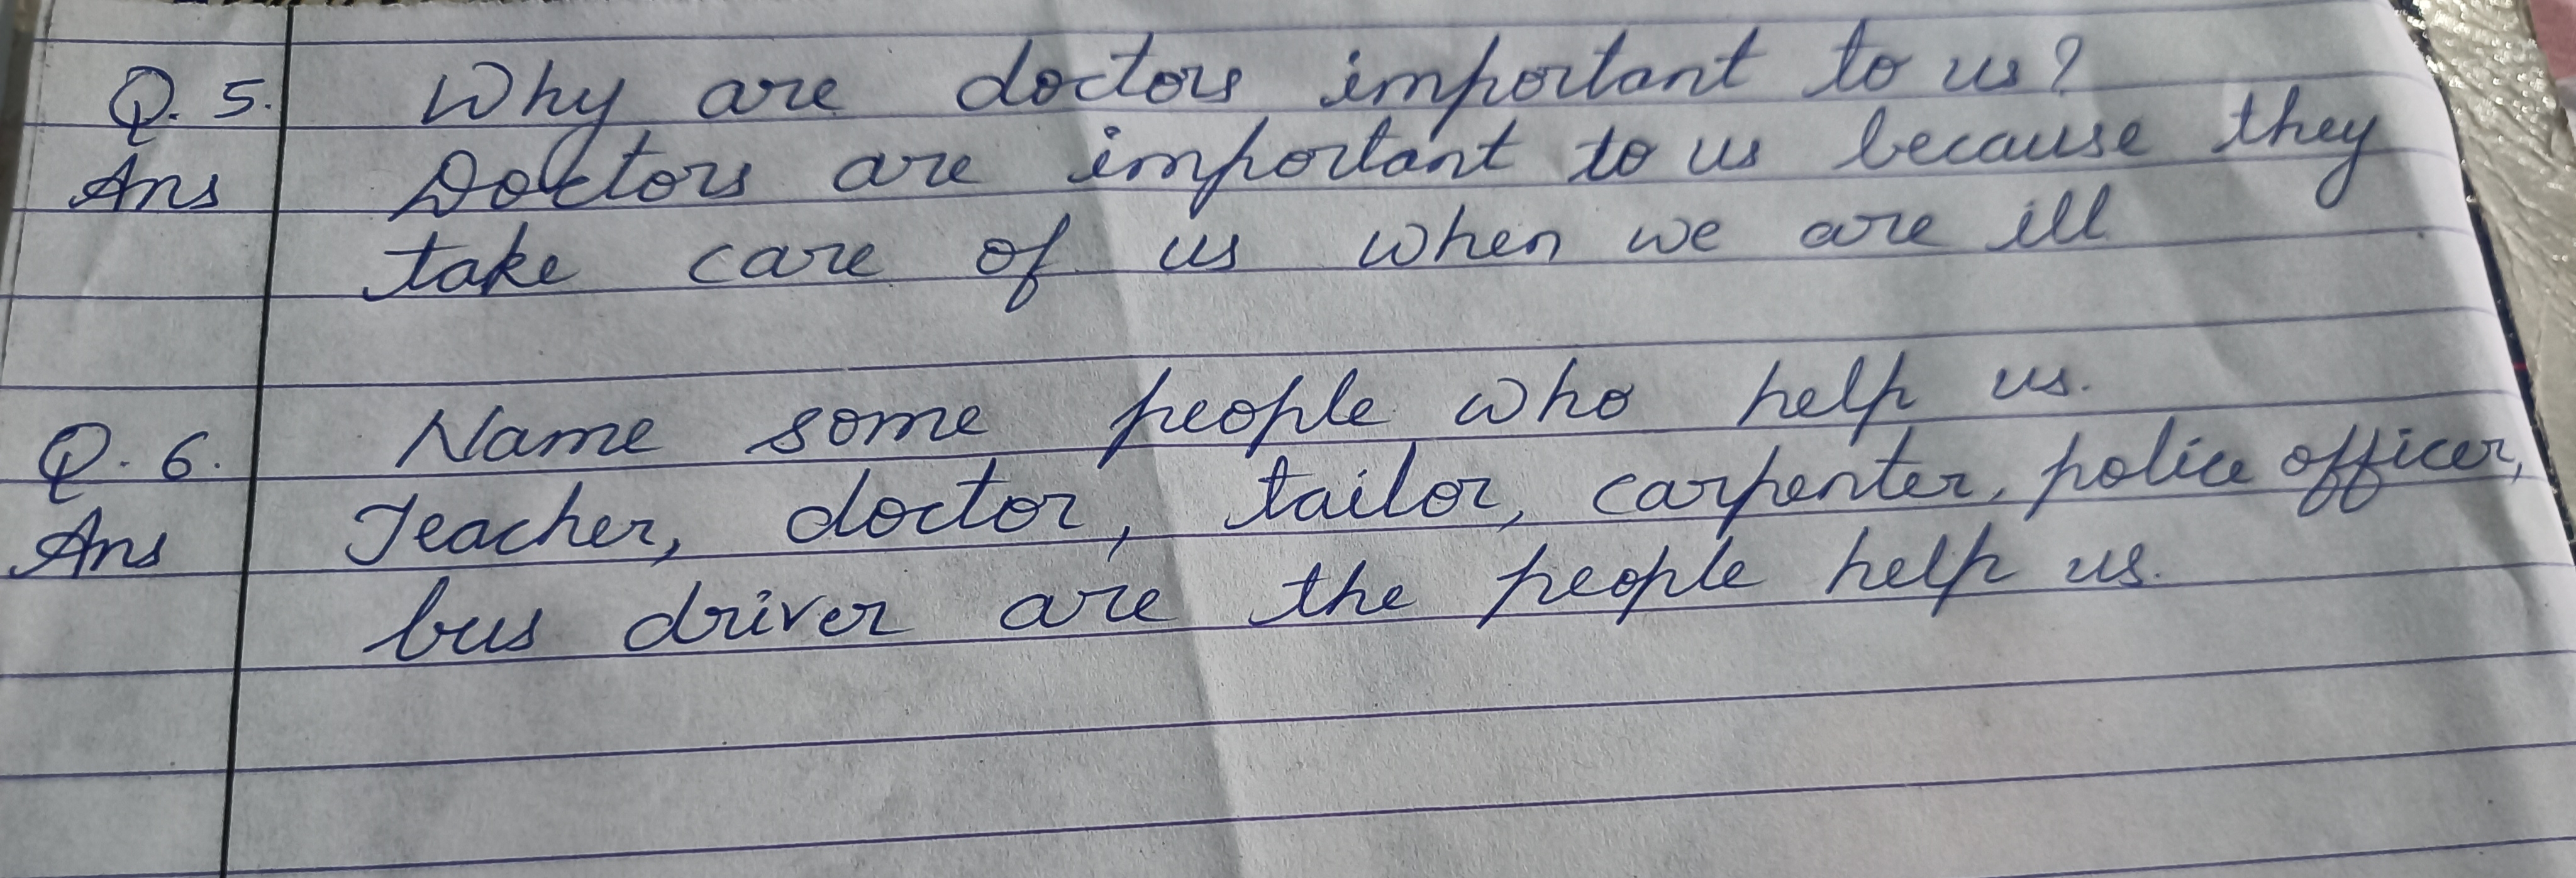 Q. 5. Why are doctors important to us?
Ans Doctors are important to us because they
take care of us when we are ill
Q. 6. Name some people who help us.
Ans Teacher, doctor, tailor, carpenter, police officer,
bus driver are the people help us.